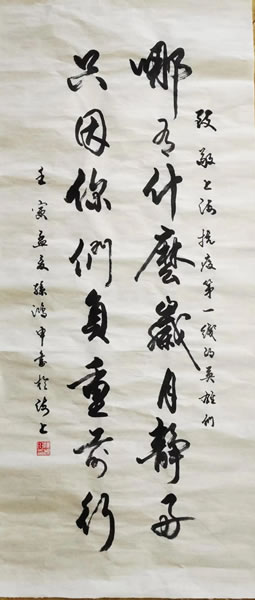 致敬上海抗疫第一綫的英雄们
哪有什麼歲月靜好
只因你們負重前行
壬寅孟夏孫鴻申書於海上